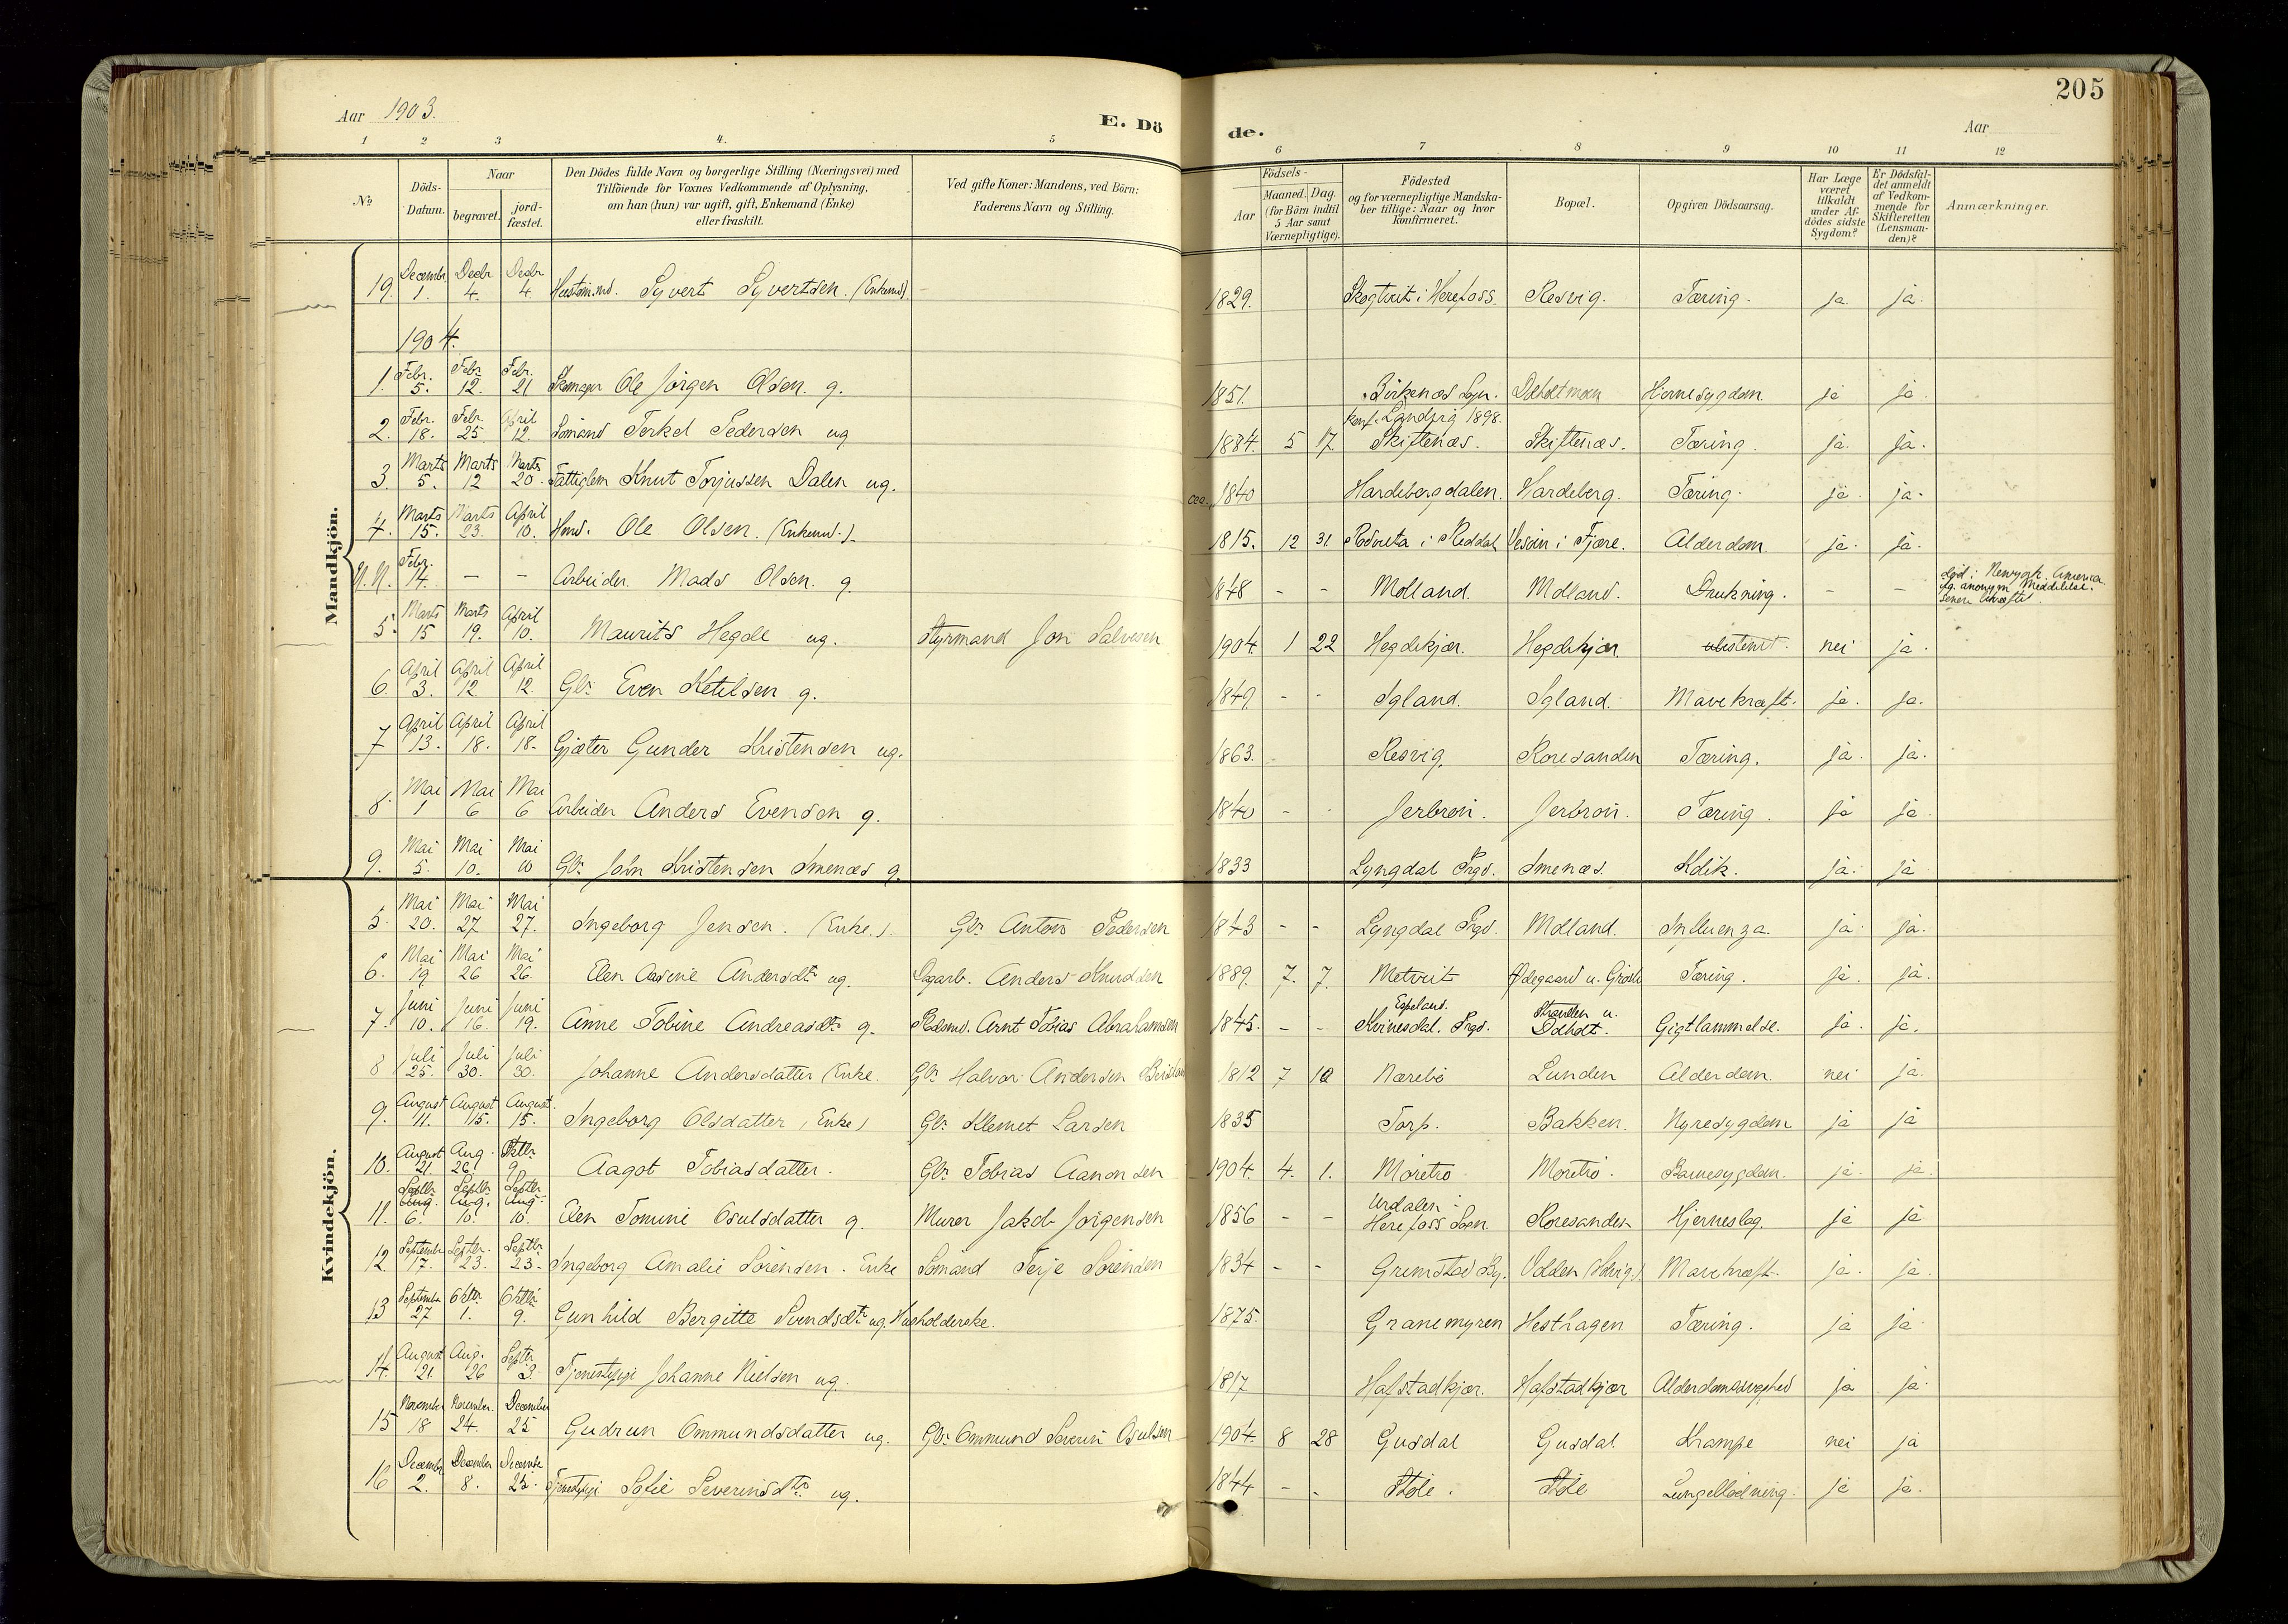 205
Aar 1903.
E. Dö
de.
Aar
1 2 3 4. 5 6 7 8 9 10 11 12
No
Döds-Datum.
Naar
begravet.
jord-fæstet.
Den Dödes fulde Navn og borgerlige Stilling (Næringsvei) med
Tilföiende for Voxnes Vedkommende af Oplysning,
om han (hun) var ugift, gift, Enkemand (Enke)
eller fraskilt.
Ved gifte Koner: Mandens, ved Börn:
Faderens Navn og Stilling.
Födsels-
Aar
Maaned. Dag.
(for Börn indtil
5 Aar samt
Værnepligtige).
Födested
og for værnepligtige Mandska-
ber tillige: Naar og hvor
konfirmeret.
Bopæl.
Opgiven Dödsaarsag.
Har Læge
været
tilkaldt
under Af-
dödes sidste
Sygdom?
Er Dödsfal-
det anmeldt
af Vedkom-
mende for
Skifteretten
(Lensman-
den)?
Anmærkninger.
Mandkjön.
19. Decembr 1. Decbr 4. Decbr 4. Syvert Syvertsen. (Enkemd). 1829. Skogtveit i Herefoss. Resvig. Tæring. ja ja.
1904.
1. Febr. 5. Febr. 12. Febr. 21 Ole Jörgen Olsen. g. 1851. Birkenes Sogn. Hjernesygdom ja ja
2. Febr. 18. Febr. 25. April 12. Sömand Terkel Pedersen ug 1884. 5 17 konf. Landvig 1898. Skiftenæs. Skiftenæs. Tæring. ja. ja.
3. Marts 5. Marts 12 Marts 20. Fattiglem Knut Torjussen Dalen ug. 1840 Hardebergdalen. Hardeberg. Tæring. ja. ja.
4. Marts 15. Marts 23. April 10. Ole Olsen. (Enkemd.). 1815. 12 31. i Reddal i Fjære. Alderdom. ja. ja.
N.N. Febr. 14. – – Arbeider. Mads Olsen. g. 1848 - - Molland. Molland. Drukning. – – död i Newyork. America. flg. anonym Meddelelse.
5. Marts 15 Marts 19. April 10. Maurits Hegdl ug. Styrmand Jon Salvesen 1904. 1 22 Hegdekjær. Hegdekjær. ubestemt. nei ja.
6. April 3. April 12 April 12. Gbr. Even Ketilsen g. 1849. - - Igland. Igland. Mavekræft. ja. ja.
7 April 13. April 18. April 18. Gjæter Gunder Kristensen ug. 1863. Resvig. Roresanden Tæring. ja. ja.
8. Mai 1 Mai 6 Mai 6 Arbeider Anders Evensen g. 1840 - - Jerbron. Jerbron. Tæring. ja ja
9. Mai 5. Mai 10. Mai 10 Gbr. John Kristensen Smenæs g. 1833 Lyngdal Prgd. Smenæs. Kolik. ja. ja
Kvindekjön.
5. Mai 20. Mai 27 Mai 27. Ingeborg Jensen. (Enke.). Gbr. Anton Pedersen 1843 - - Lyngdal Prgd. Molland. Influenza. ja ja.
6. Mai 19 Mai 26 Mai 26. Elen Aasine Andersdtr ug. Anders Knudsen 1889. 7. 7. Metveit Ødegaard u. Tæring. ja. ja.
7. Juni 10. Juni 16. Juni 19. Anne Tobine Andreasdtr g. Arnt Tobias Abrahamsen 1845. - - Egeland. Kvinesdal. Prgd. Stranden u. Gigtlammelse. ja. ja.
8 Juli 25. Juli 30. Juli 30. Johanne Andersdatter (Enke. Gbr. Halvor Andersen 1812 7 10 Nærebö Lunden Alderdom. nei ja.
9. August 11. August 15. August 15. Ingeborg Olsdatter (Enke) Gbr. Klemet Larsen 1835 Torp. Bakken. Nyresygdom ja ja
10. August 21. Aug. 26. Oktbr. 9. Aagot Tobiasdatter. Gbr. Tobias Aanonsen 1904. 4. 1. Möretrö Möretrö. Barnesygdom. ja. ja.
11. Septbr. Aug. 6. Septbr. Aug. 10. Septbr. Aug. 10. Elen Tomine Osulsdatter g. Murer Jakob Jörgensen 1856 - - Urdalen i Herefoss Sogn Roresanden Hjerneslag. ja ja
12. Septembr 17. Septbr. 23. Septbr. 23. Ingeborg Amalie Sörensen. Enke Sömand Terje Sörensen 1834 - - Grimstad By. Mavekræft. ja. ja.
13 Septembr 27 Oktbr. 1. Oktbr. 9. Gunhild Bergitte Svendsdtr ug. Husholderske. 1875. Granemyren Hesthagen Tæring. ja ja.
14. August 21. Aug. 26 Septbr 3. Tjenestepige Johanne Nielsen ug. 1817 Hafstadkjær. Hafstadkjær Alderdomssvaghed ja ja.
15 November 18 November. 24. December 25 Gudrun Ommundsdatter ug. Gbr. Ommund Severin Osulsen 1904. 8 28 Gusdal Gusdal. Krampe nei ja
16 December 2. December 8. December 25. Tjenestepige Sofie Severinsdtr. ug. 1844 - - Stöle. Stöle Lungeblödning. ja ja.